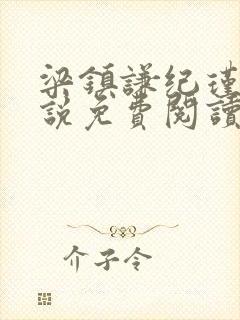 梁鎮謙纪瑾
說免費閱讀
介子令